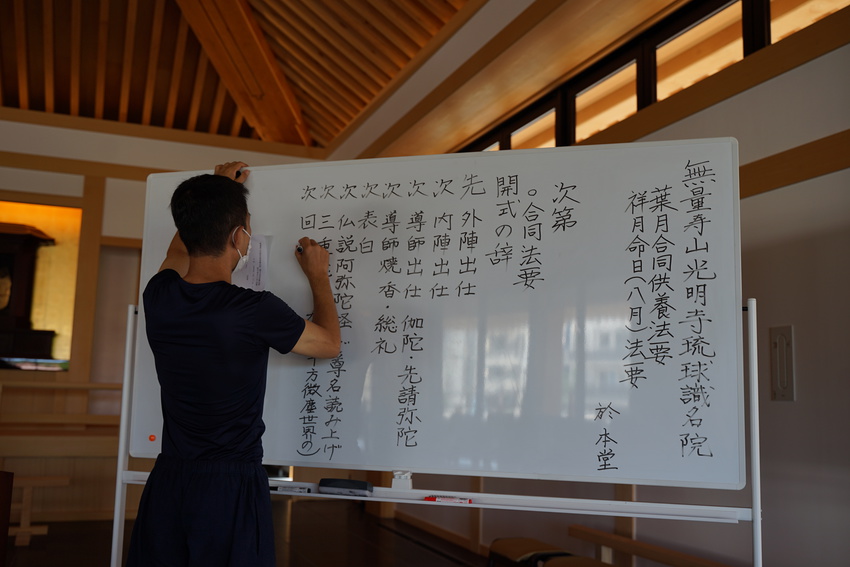 無量寿山光明寺琉球識名院
葉月合同供養法要
祥月命日(八月)法要
於本堂
次第
○合同法要
開式の辞
先 外陣出仕
次 内陣出仕
次 導師出仕 伽陀・先請弥陀
次 導師焼香・総礼
次 表白
次 仏説阿弥陀経 尊名読み上げ
次 三 方微塵世界の)
次 回